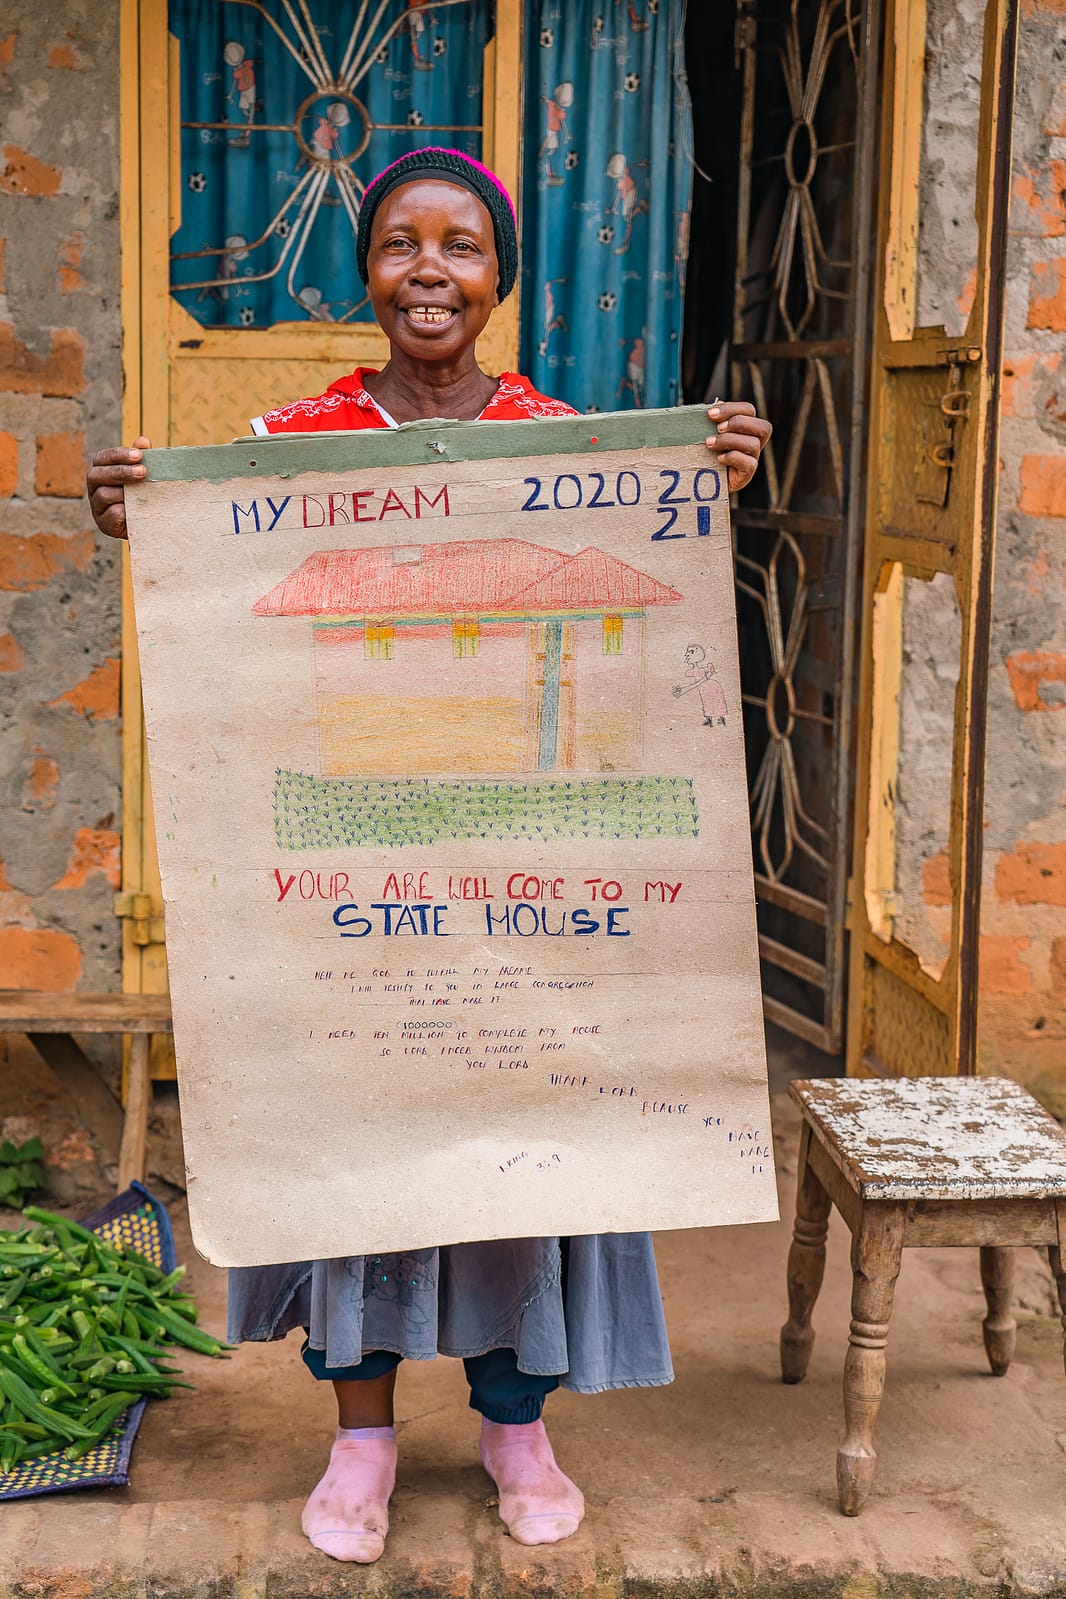 MY DREAM 2020 20
21
YOUR ARE WELL COME TO MY
STATE HOUSE
HELP ME GOD TO FULFILL MY DREAME
I WILL TESTIFY TO YOU IN LARGE CONGREGATION
THAT HAVE MADE IT
1000000
I NEED TEN MILLION TO COMPLETE MY HOUSE
SO LORD I NEED WISDOM FROM
YOU LORD
THANK
LORD
BEAUSE
YOU
HAVE
MADE
IT
1 KING 3:9